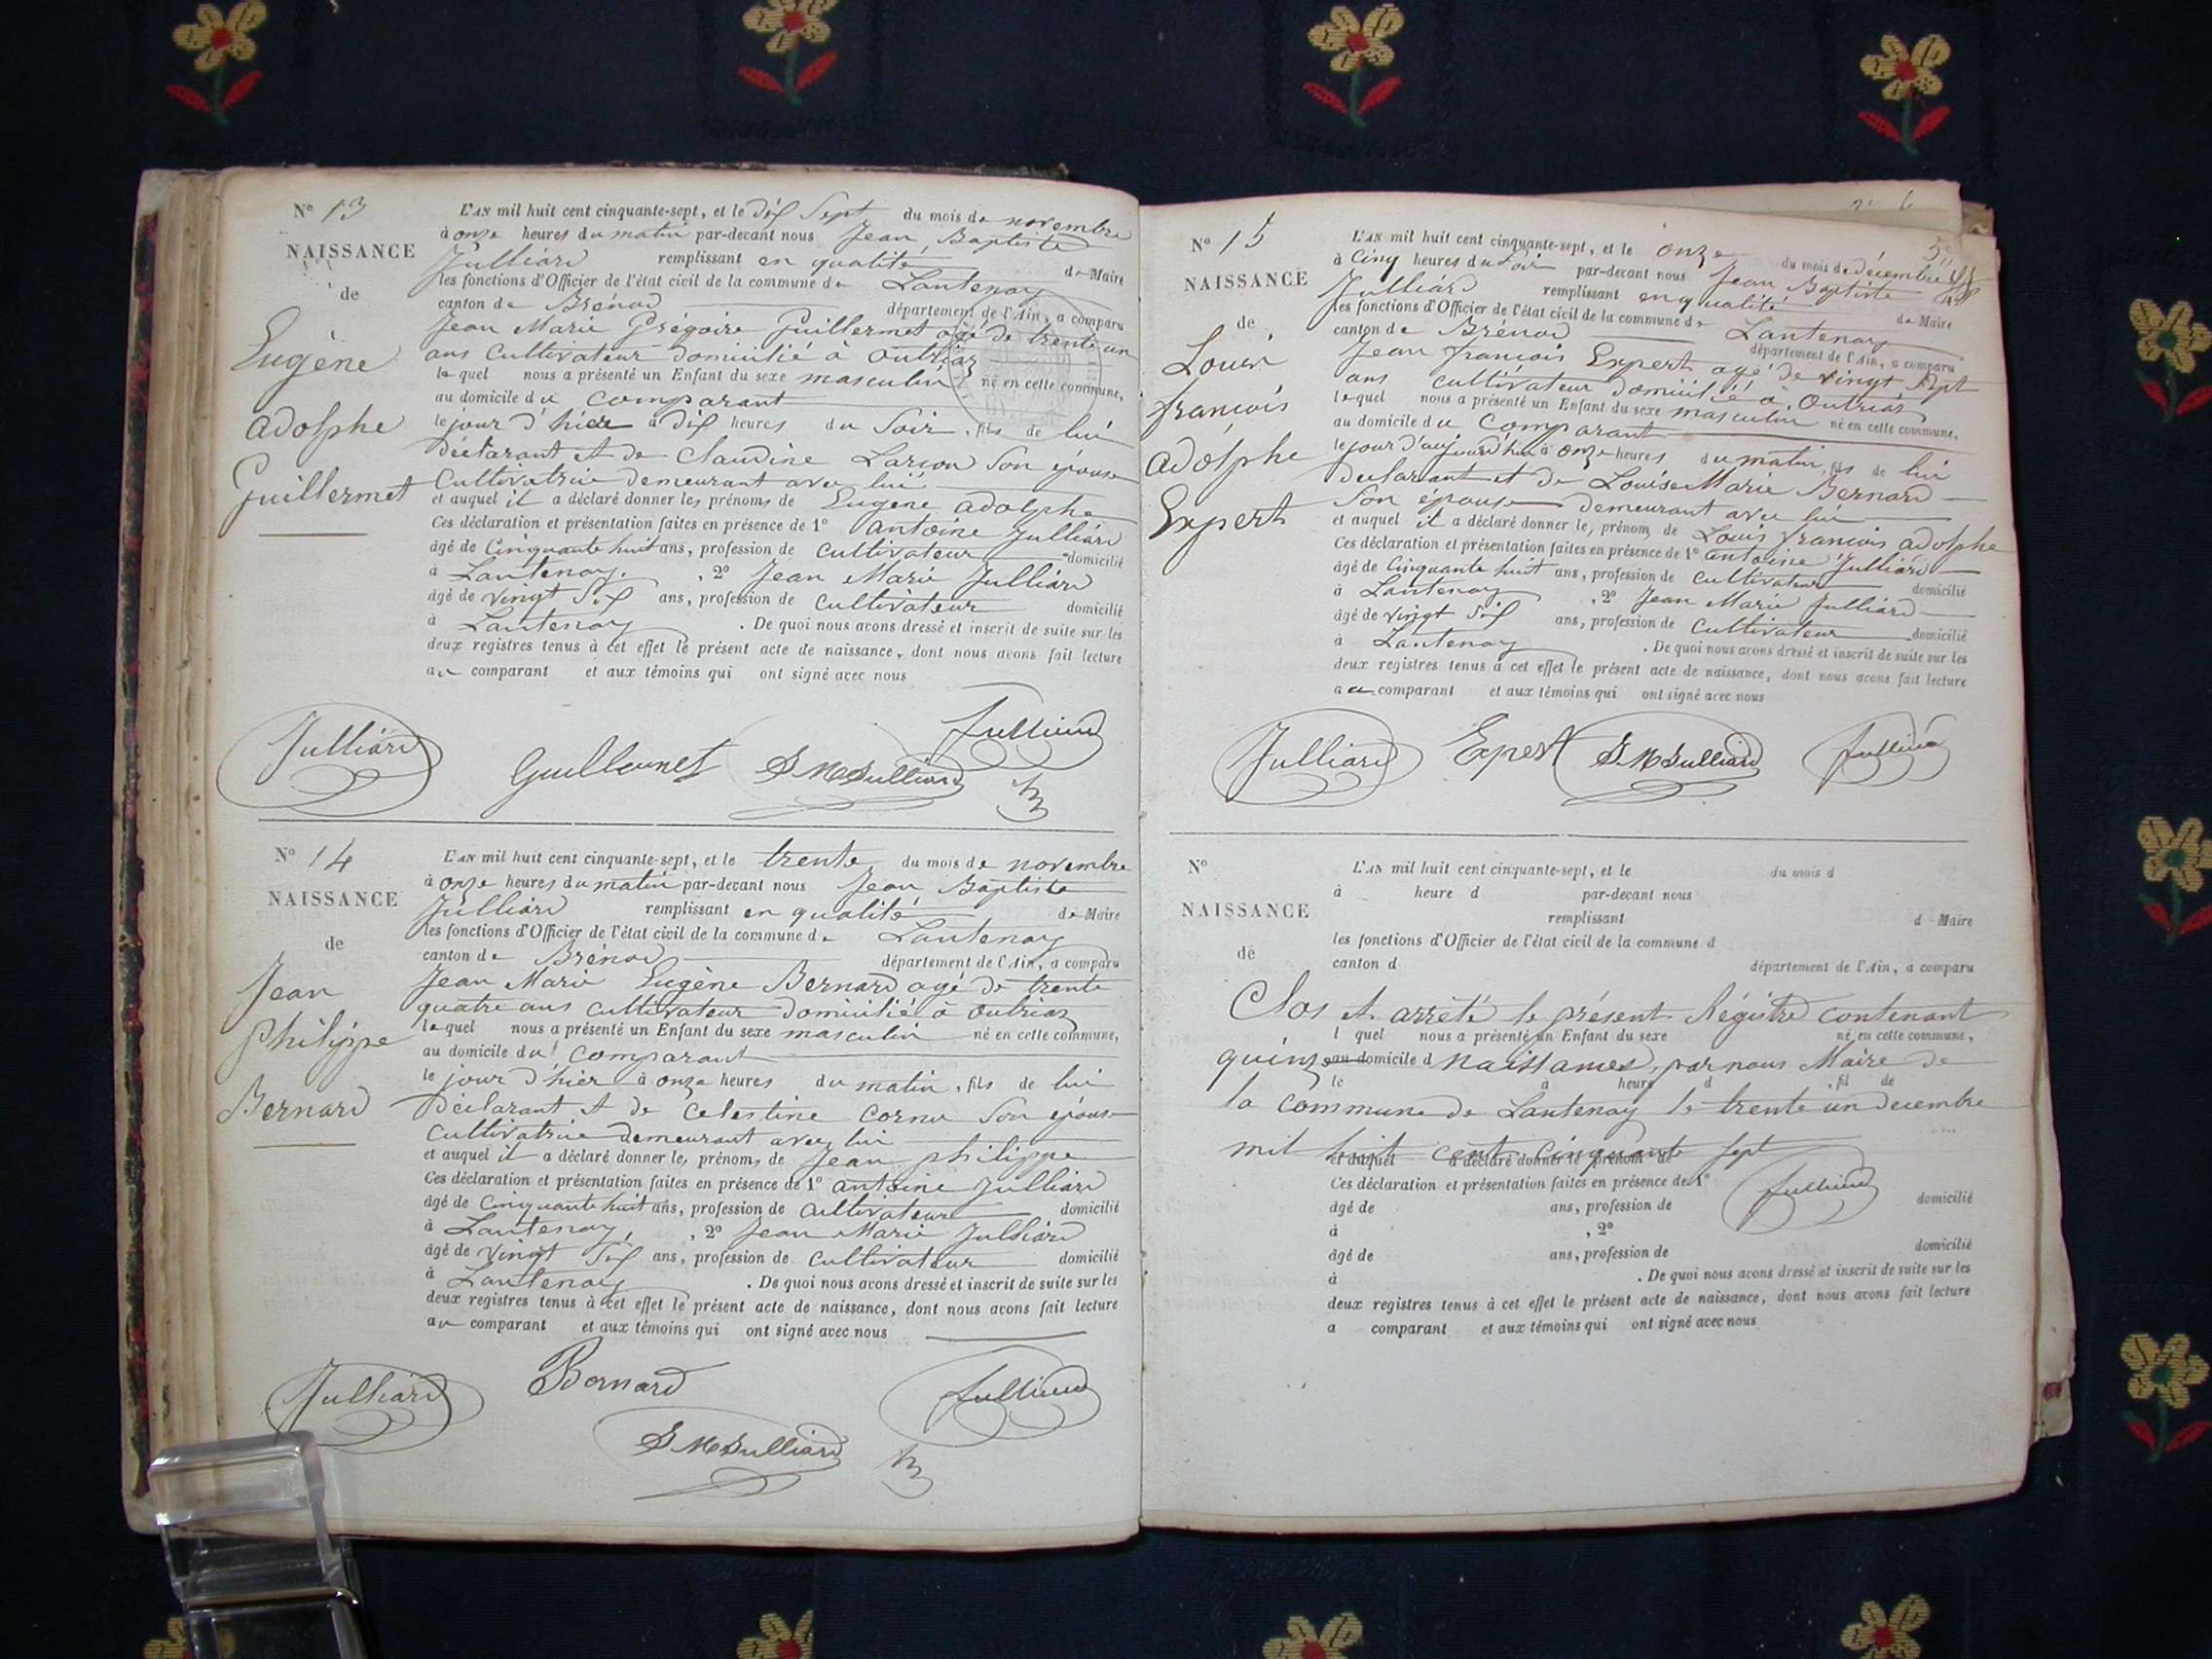 N° 13
NAISSANCE
de
Eugène
adolphe
Guillermet
L'AN mil huit cent cinquante-sept, et le dix Sept du mois de novembre
à onze heures du matin par-devant nous Jean Baptiste
Julliard remplissant en qualité de Maire
les fonctions d'Officier de l'état civil de la commune de Lantenay
canton de Brénod département de l'Ain, a comparu
Jean Marie Grégoire Guillermet agé de trente un
ans cultivateur domicilié à outriaz
lequel nous a présenté un Enfant du sexe masculin né en cette commune,
au domicile du comparant
le jour d'hier à dix heures du Soir, fils de lui
déclarant et de Claudine Larçon Son épouse
Cultivatrice demeurant avec lui
et auquel il a déclaré donner les prénoms de Eugène adolphe
Ces déclaration et présentation faites en présence de 1° antoine Julliard
âgé de Cinquante huit ans, profession de cultivateur domicilié
à Lantenay. , 2° Jean Marie Julliard
âgé de vingt Six ans, profession de cultivateur domicilié
à Lantenay . De quoi nous avons dressé et inscrit de suite sur les
deux registres tenus à cet effet le présent acte de naissance, dont nous avons fait lecture
au comparant et aux témoins qui ont signé avec nous
Julliard Guillermet J M Julliard Julliard
N° 14
NAISSANCE
de
Jean
Philippe
Bernard
L'AN mil huit cent cinquante-sept, et le trente du mois de novembre
à onze heures du matin par-devant nous Jean Baptiste
Julliard remplissant en qualité de Maire
les fonctions d'Officier de l'état civil de la commune de Lantenay
canton de Brénod département de l'Ain, a comparu
Jean Marie Eugène Bernard agé de trente
quatre ans cultivateur domicilié à outriaz
lequel nous a présenté un Enfant du sexe masculin né en cette commune,
au domicile du comparant
le jour d'hier à onze heures du matin, fils de lui
déclarant et de Celestine Cornu Son épouse
Cultivatrice demeurant avec lui
et auquel il a déclaré donner les prénoms de Jean philippe
Ces déclaration et présentation faites en présence de 1° antoine Julliard
âgé de Cinquante huit ans, profession de cultivateur domicilié
à Lantenay , 2° Jean Marie Julliard
âgé de vingt Six ans, profession de cultivateur domicilié
à Lantenay . De quoi nous avons dressé et inscrit de suite sur les
deux registres tenus à cet effet le présent acte de naissance, dont nous avons fait lecture
au comparant et aux témoins qui ont signé avec nous
Julliard Bernard Julliard
J M Julliard
N° 15
NAISSANCE
de
Louis
françois
adolphe
Expert
L'AN mil huit cent cinquante-sept, et le onze du mois de décembre
à Cinq heures du Soir par-devant nous Jean Baptiste
Julliard remplissant en qualité de Maire
les fonctions d'Officier de l'état civil de la commune de Lantenay
canton de Brénod département de l'Ain, a comparu
Jean françois Expert agé de vingt Sept
ans cultivateur domicilié à Outriaz
lequel nous a présenté un Enfant du sexe masculin né en cette commune,
au domicile du comparant
le jour d'aujourd'hui à onze heures du matin, fils de lui
déclarant et de Louise Marie Bernard
Son épouse demeurant avec lui
et auquel il a déclaré donner le, prénom, de Louis françois adolphe
Ces déclaration et présentation faites en présence de 1° antoine Julliard
âgé de Cinquante huit ans, profession de cultivateur domicilié
à Lantenay , 2° Jean Marie Julliard
âgé de vingt Six ans, profession de cultivateur domicilié
à Lantenay . De quoi nous avons dressé et inscrit de suite sur les
deux registres tenus à cet effet le présent acte de naissance, dont nous avons fait lecture
au comparant et aux témoins qui ont signé avec nous
Julliard Expert J M Julliard Julliard
N°
NAISSANCE
de
L'AN mil huit cent cinquante-sept, et le du mois d
à heure d par-devant nous
remplissant d Maire
les fonctions d'Officier de l'état civil de la commune d
canton d département de l'Ain, a comparu
Clos et arrêté le présent Régistre contenant
l quel nous a présenté un Enfant du sexe né en cette commune,
quinze au domicile d naissances, par nous Maire de
le à heure d , fil de
la commune de Lantenay le trente un decembre
mil huit cent cinquante sept
et auquel a déclaré donner le prénom de
Ces déclaration et présentation faites en présence de 1° Julliard
âgé de ans, profession de domicilié
à , 2°
âgé de ans, profession de domicilié
à . De quoi nous avons dressé et inscrit de suite sur les
deux registres tenus à cet effet le présent acte de naissance, dont nous avons fait lecture
a comparant et aux témoins qui ont signé avec nous